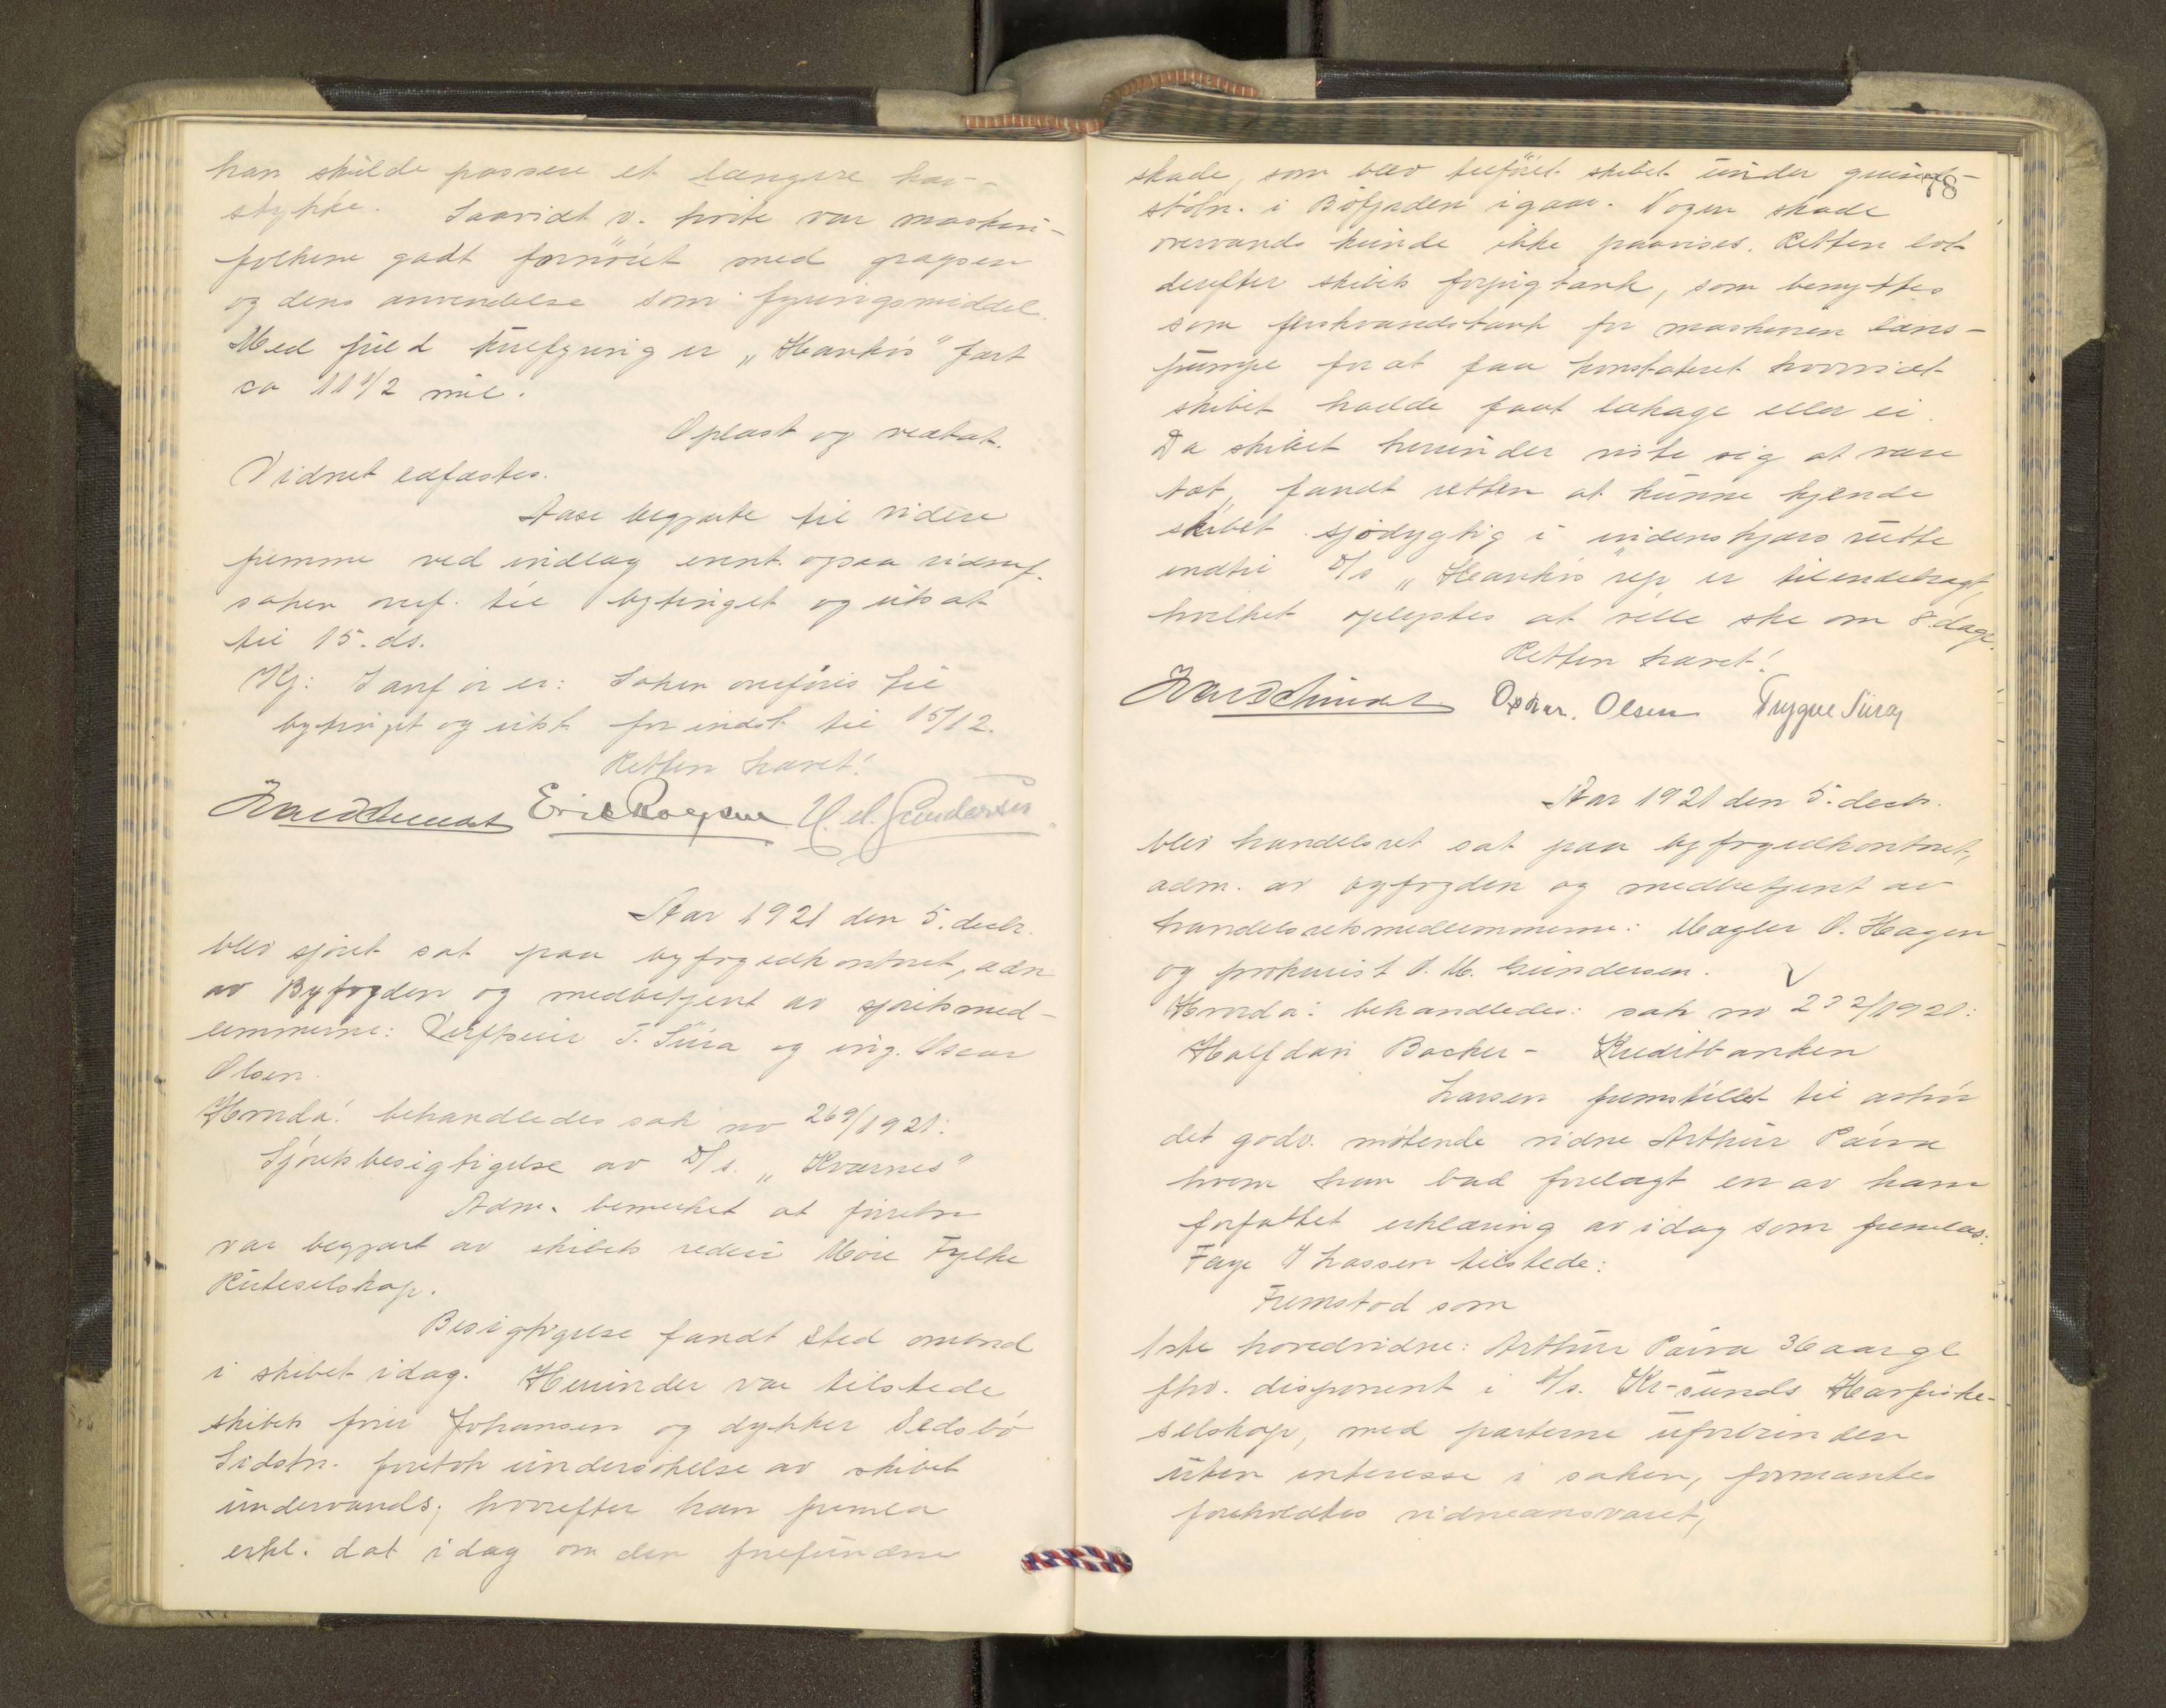 han skulde passere et længere hav-
stykke. Saavidt v. vite var maskin-
folkene godt fornöiet med grapsen
og dens anvendelse som fyringsmiddel.
Med fuld kulfyring er „Haukös" fart
ca 11 1/2 mil.
Oplæst og vedtat.
Vidnet edfæstes.
Aase begjærte til videre
fremme ved indlæg event. ogsaa vidnef.
saken overf. til bytinget og utsat
til 15. ds.
Kj: Sanför er: Saken overföres til
bytinget og utst. for indst. til 15/12.
Retten hævet!
Eric Rogsum H. M. Gundersen
Aar 1921 den 5. decbr.
blev sjöret sat paa byfogedkontoret, adm
av Byfogden og medbetjent av sjöretsmed-
lemmerne: Verftseier T. Sura og ing. Oscar
Olsen.
Hvorda! behandledes sak no 269/1921:
Sjöretsbesigtigelse av D/s. „Kværnes"
Adm. bemerket at forretn
var begjært av skibets rederi Möre Fylke
Ruteselskap.
Besigtigelse fandt sted ombord
i skibet idag. Herunder var tilstede
skibets förer Johansen og dykker Sedsbö
Sidstn. foretok undersökelse av skibet
undervands, hvorefter han fremla
erkl. dat idag om den forefundne
78
skade, som blev tilföiet skibet under grund-
stötn. i Böfjorden igaar. Nogen skade
overvands kunde ikke paavises. Retten lot
derefter skibets forpigtank, som benyttes
som ferskvandstank for maskinen læns-
pumpe for at faa konstateret hvorvidt
skibet hadde faat lækage eller ei.
Da skibet herunder viste sig at være
tæt, fandt retten at kunne kjende
skibet sjödygtig i indenskjærs rutte
indtil D/s „Haukös" rep. er tilendebragt,
hvilket oplystes at ville ske om 8 dage.
Retten hævet!
Oskar. Olsen Trygve Sura
Aar 1921 den 5. decbr.
blev handelsret sat paa byfogedkontoret,
adm. av byfogden og medbetjent av
handelsretsmedlemmerne: Mægler O. Hagen
og prokurist O. M. Gundersen.
Hvorda: behandledes: sak no 232/1921:
Halfdan Backer - Kreditbanken
Larsen fremstillet til avhör
det godv. mötende vidne Arthur Paiva
hvem han bad forelagt en av ham
forfattet erklæring av idag som fremlas:
Faye & Lassen tilstede:
Fremstod som
1ste hovedvidne: Arthur Paiva 36 aar gl
fhv. disponent i A/s. Kr-sunds Havfiske-
selskap, med parterne uforbunden
uten interesse i saken, formantes
foreholdtes vidneansvaret,